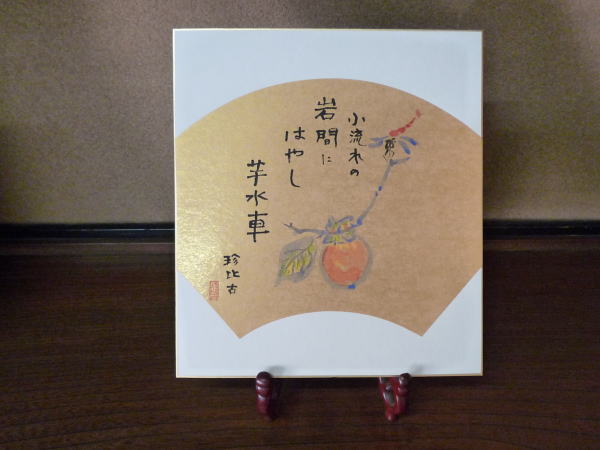 小流れの
岩間に
はやし
芋水車
珍比古